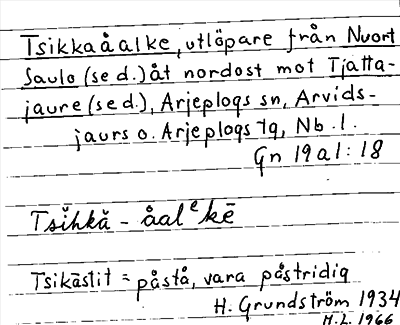 Tsikkaåalke, utlöpare från Nuort
Saulo (se d.) åt nordost mot Tjatta-
jaure (se d.), Arjeplogs sn, Arvids-
jaurs o. Arjeplogs tg, Nb. l.
Gn 19 a 1 : 18
Tsĭhkă - åalᵉkē
Tsikāstit = påstå, vara påstridig
H. Grundström 1934
H.L. 1966